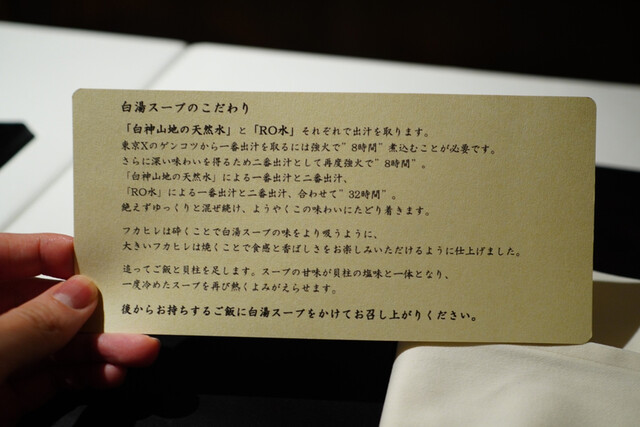 白湯スープのこだわり
「白神山地の天然水」と「RO水」それぞれで出汁を取ります。
東京Xのゲンコツから一番出汁を取るには強火で"8時間"煮込むことが必要です。
さらに深い味わいを得るため二番出汁として再度強火で"8時間"。
「白神山地の天然水」による一番出汁と二番出汁、
「RO水」による一番出汁と二番出汁、合わせて"32時間"。
絶えずゆっくりと混ぜ続け、ようやくこの味わいにたどり着きます。
フカヒレは砕くことで白湯スープの味をより吸うように、
大きいフカヒレは焼くことで食感と香ばしさをお楽しみいただけるように仕上げました。
追ってご飯と貝柱を足します。スープの甘味が貝柱の塩味と一体となり、
一度冷めたスープを再び熱くよみがえらせます。
後からお持ちするご飯に白湯スープをかけてお召し上がりください。